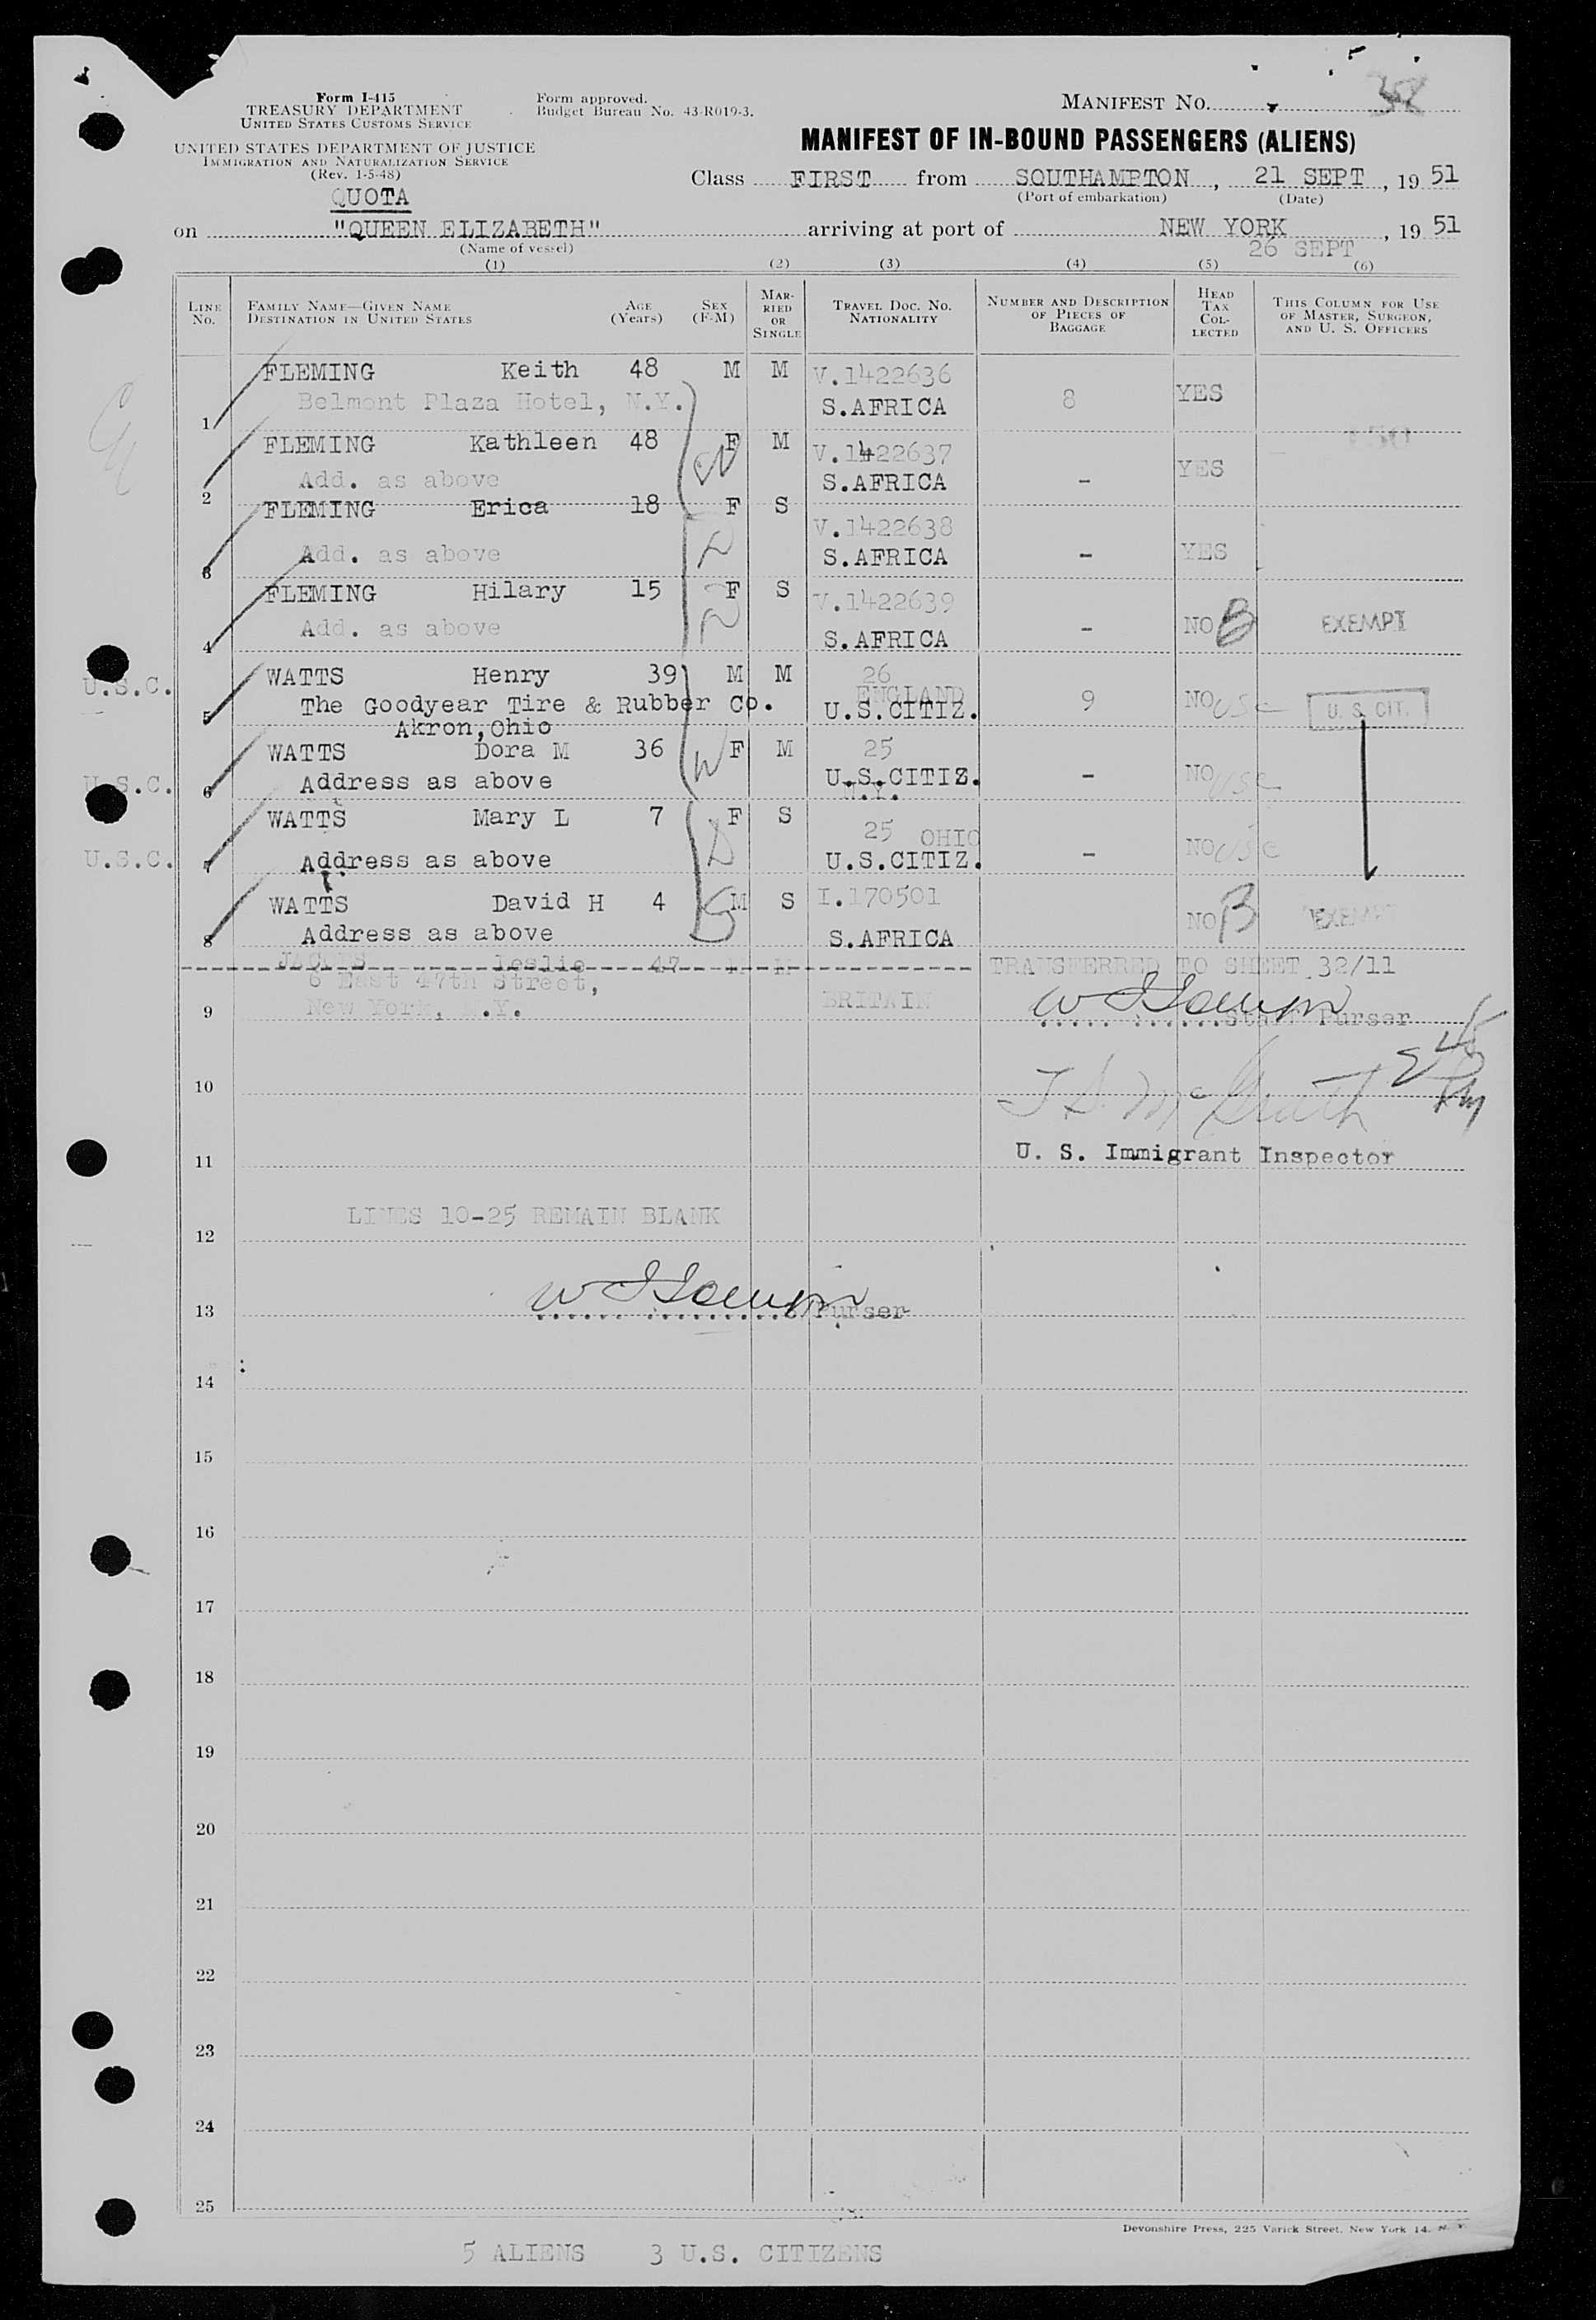 Form I-415
TREASURY DEPARTMENT
UNITED STATES CUSTOMS SERVICE
UNITED STATES DEPARTMENT OF JUSTICE
IMMIGRATION AND NATURALIZATION SERVICE
(Rev. 1-5-48)
QUOTA
Form approved.
Budget Bureau No. 43-R019-3.
MANIFEST NO. 38
MANIFEST OF IN-BOUND PASSENGERS (ALIENS)
Class FIRST from SOUTHAMPTON, 21 SEPT, 19 51
(Port of embarkation) (Date)
on "QUEEN ELIZABETH" arriving at port of NEW YORK, 19 51
(Name of vessel) 26 SEPT
(1) (2) (3) (4) (5) (6)
LINE NO. FAMILY NAME—GIVEN NAME DESTINATION IN UNITED STATES AGE (Years) SEX (F-M) MARRIED OR SINGLE TRAVEL DOC. NO. NATIONALITY NUMBER AND DESCRIPTION OF PIECES OF BAGGAGE HEAD TAX COLLECTED THIS COLUMN FOR USE OF MASTER, SURGEON, AND U. S. OFFICERS
FLEMING Keith 48 M M V.1422636
1 Belmont Plaza Hotel, N.Y. S.AFRICA 8 YES
FLEMING Kathleen 48 F M V.1422637
2 Add. as above S.AFRICA - YES
FLEMING Erica 18 F S V.1422638
3 Add. as above S.AFRICA - YES
FLEMING Hilary 15 F S V.1422639
4 Add. as above S.AFRICA - NO B EXEMPT
U.S.C. WATTS Henry 39 M M 26 ENGLAND
5 The Goodyear Tire & Rubber Co. U.S.CITIZ. 9 NO USC U. S. CIT.
Akron, Ohio
WATTS Dora M 36 W F M 25
U.S.C. 6 Address as above U.S.CITIZ. - NO USC
N.Y.
WATTS Mary L 7 F S 25 OHIO
U.S.C. 7 Address as above U.S.CITIZ. - NO USC
WATTS David H 4 M S I.170501
8 Address as above S.AFRICA NO B EXEMPT
JACOBS Leslie 47 M M TRANSFERRED TO SHEET 32/11
6 East 47th Street,
9 New York, N.Y. BRITAIN
Staff Purser
10 McGrath 2 45 PM
11 U. S. Immigrant Inspector
LINES 10-25 REMAIN BLANK
12
13 S/Purser
14
15
16
17
18
19
20
21
22
23
24
25
Devonshire Press, 225 Varick Street, New York 14, N. Y.
5 ALIENS 3 U.S. CITIZENS